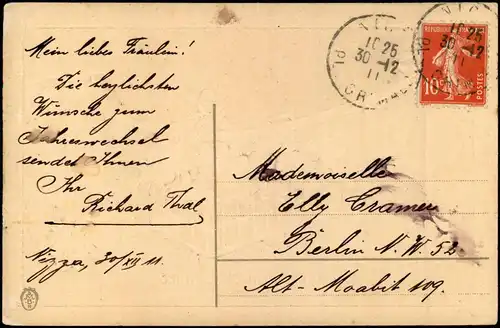 Mein liebes Fräulein!
Die herzlichsten
Wünsche zum
Jahreswechsel
sendet Ihnen
Ihr
Richard Thal
Nizza, 30/XII 11.
NICE
10 25
30 - 12
11
PL.
NICE
10 25
30 - 12
11
PL.
10c
POSTES
Mademoiselle
Elly Cramer
Berlin N.W. 52.
Alt-Moabit 109.